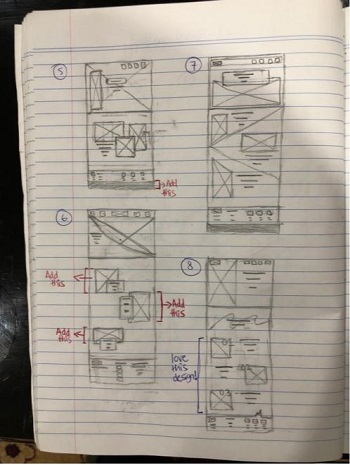 5
7
Add
this
6
8
Add
this
Add
this
Add
this
love
this
design!